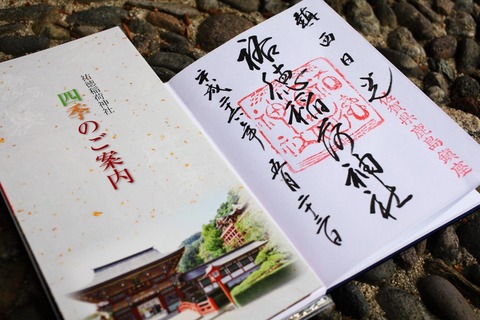 祐徳稲荷神社
四季のご案内
鎮西日光
佐賀県鹿島鎮座
祐徳稲荷神社
平成二十二年五月二十二日